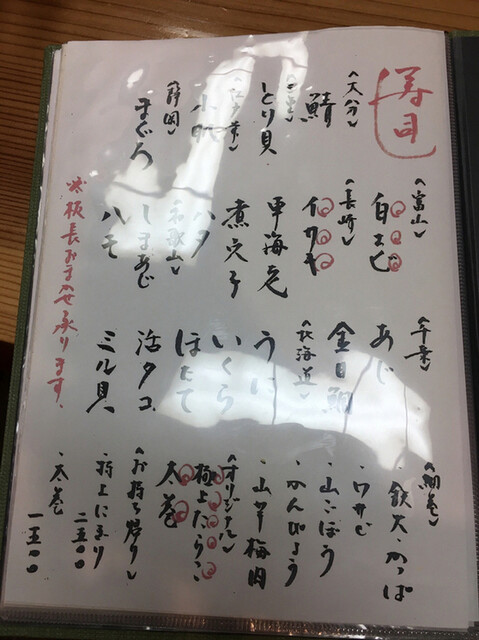 寿し
〈大分〉
鯖
〈三重〉
とり貝
〈静岡〉
まぐろ
〈富山〉
白エビ
〈長崎〉
イサキ
車海老
煮穴子
ハタ
〈和歌山〉
しまあじ
ハモ
〈千葉〉
あじ
金目鯛
〈北海道〉
うに
いくら
ほたて
活タコ
ミル貝
〈細巻〉
・鉄火・かっぱ
・ワサビ
・山ごぼう
・かんぴょう
・山芋梅肉
〈オリジナル〉
極上たらこ
大巻
〈お持ち帰り〉
・特上にぎり
二五〇〇
・太巻
一五〇〇
板長おまかせ承ります。